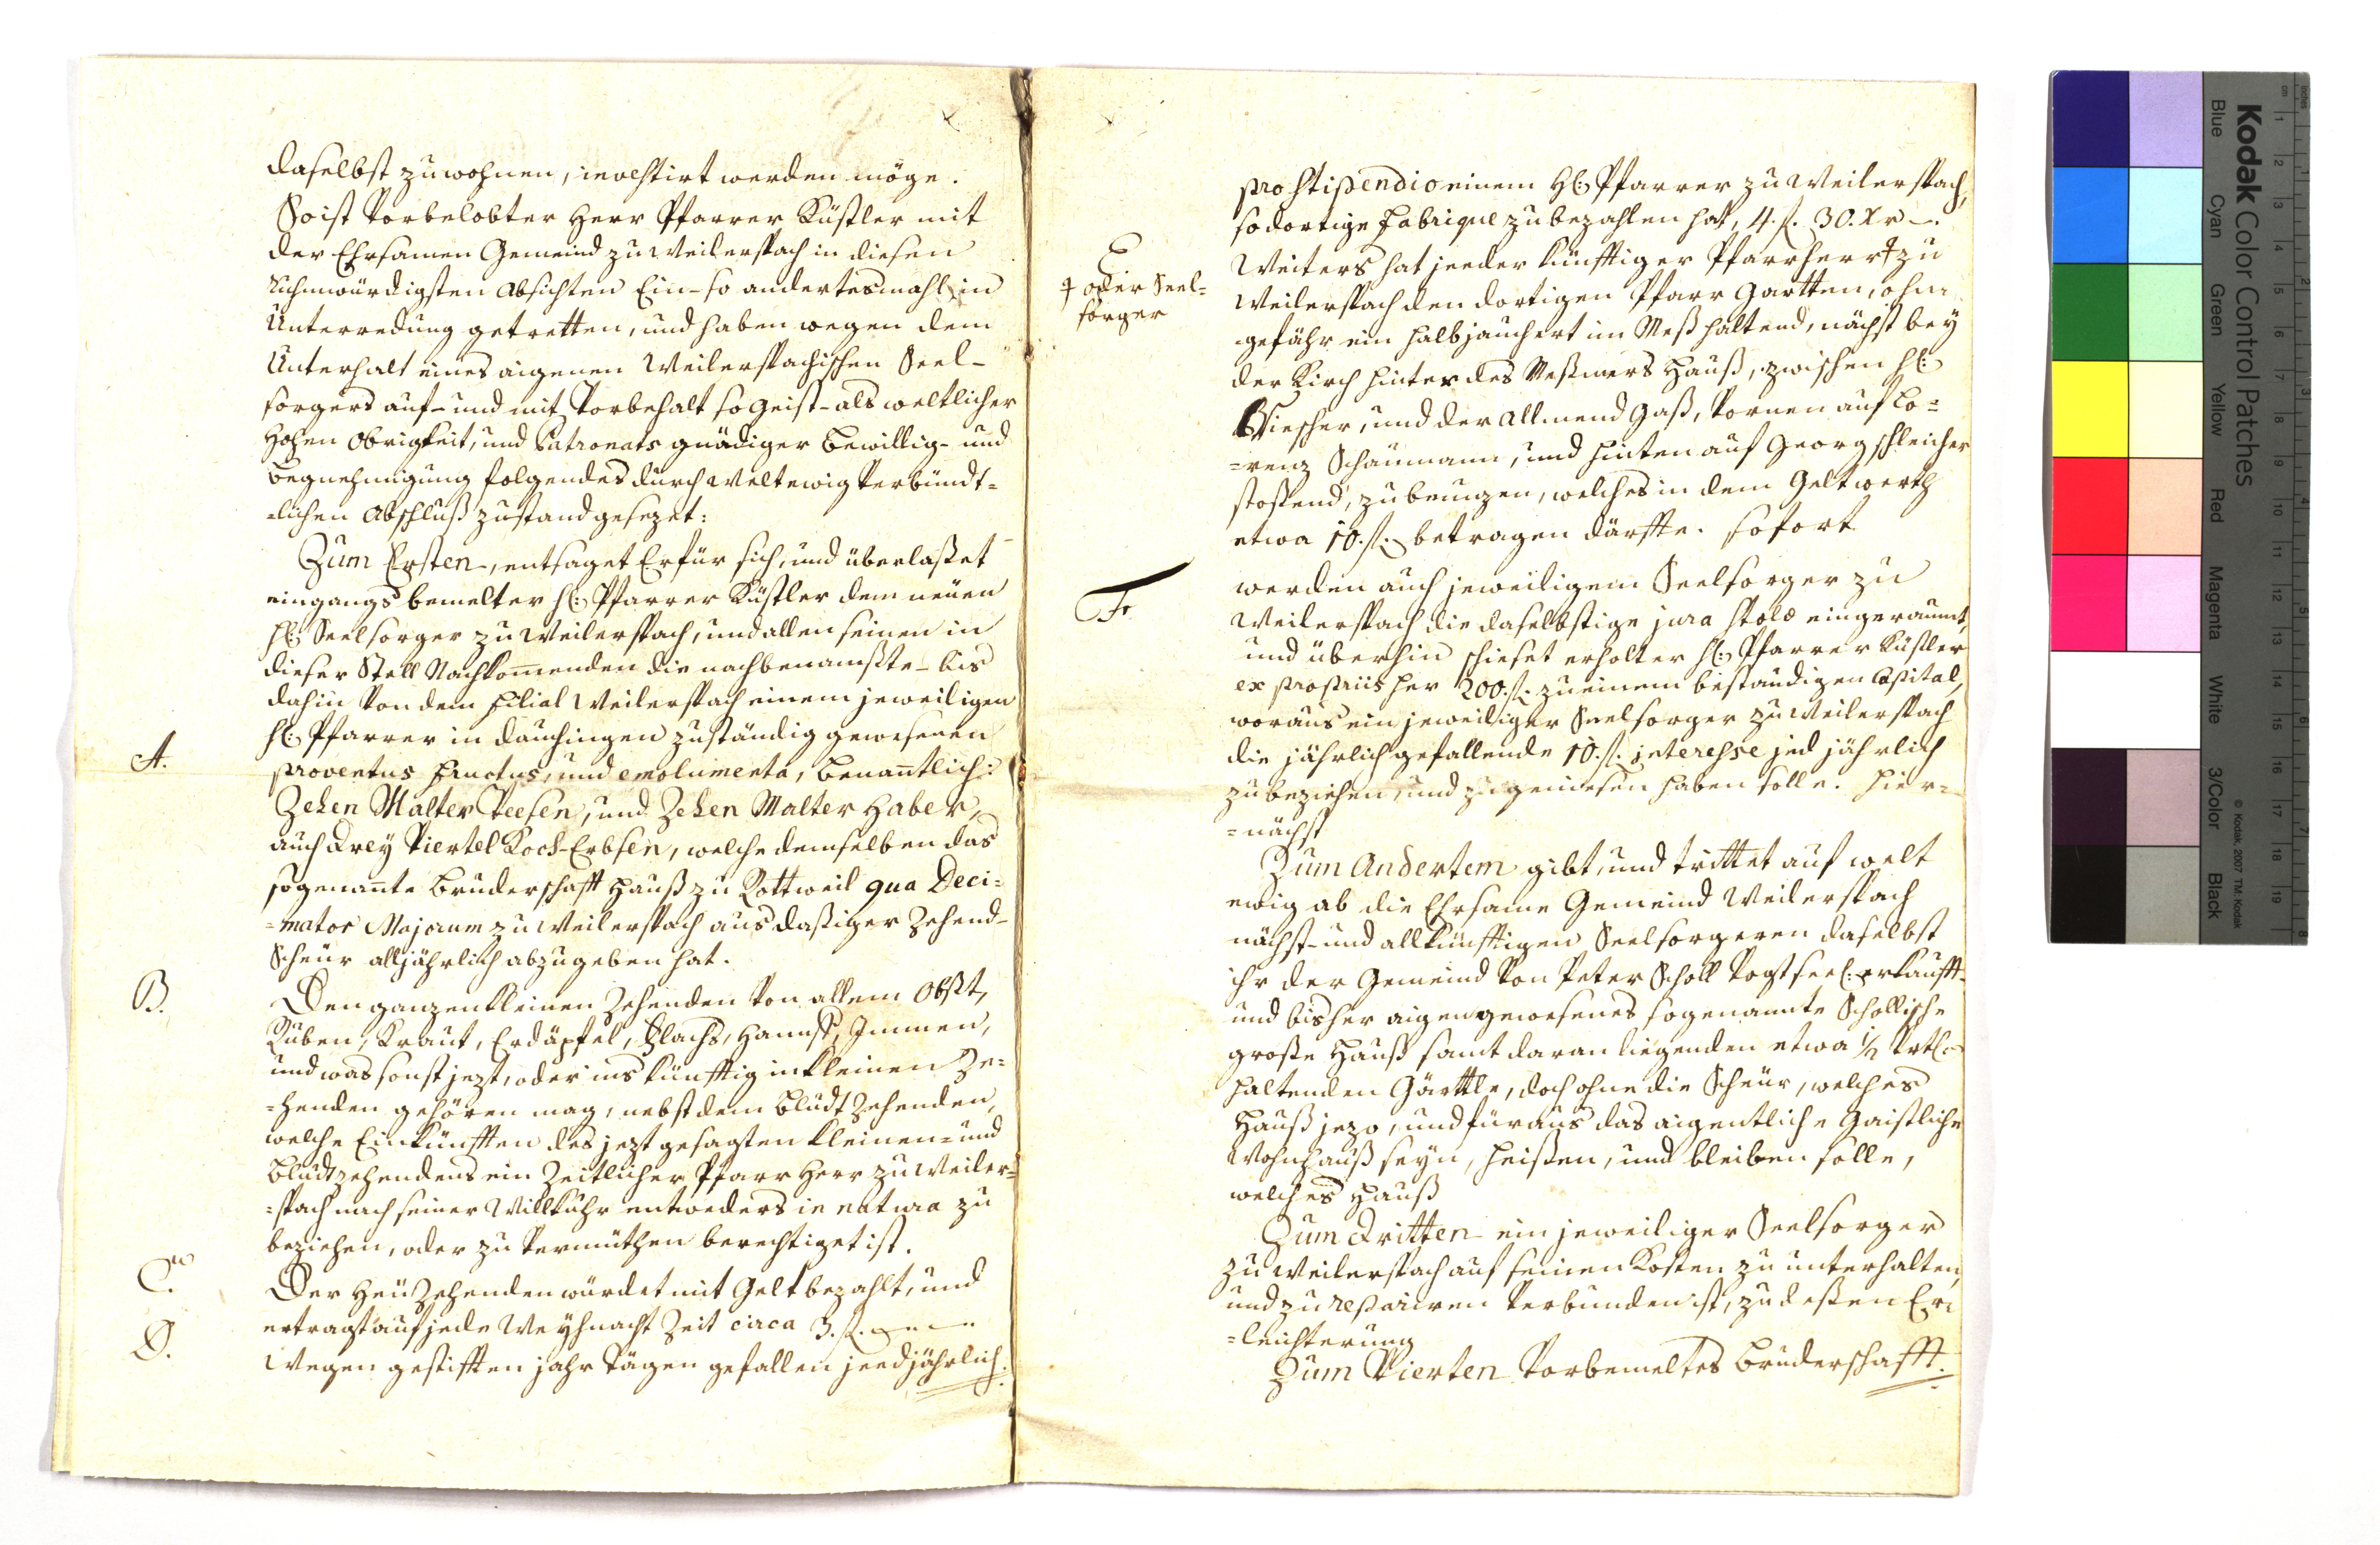 daselbst zu wohnen, investirt werden möge.
So ist Vorbelobter Herr Pfarrer Küstler mit
der Ehrsamen Gemeind zu Weilerspach in diesen
Ruhmwürdigsten Absichten Ein- so andertesmahl in
Unterredung getretten, und haben wegen dem
Unterhalt eines aigenen Weilerspachischen Seel-
sorgers auf- und mit Vorbehalt so Geist- als weltlicher
Hohen Obrigkeit, und Patronats gnädiger Bewillig- und
Begnehmigung folgendes durch Welt ewig Verbündt-
-lichen Abschluß zustand gesezet:
Zum Ersten, entsaget Er für sich, und überlaßet
eingangs bemelter H: Pfarrer Küstler dem neüen
H: Seelsorger zu Weilerspach, und allen seinen in
dieser Stell Nachkomenden die nachbenamßte- bis
dahin Von dem Filial Weilerspach einem jeweiligen
H: Pfarrer in Dauchingen zuständig gewesenen
A.
proventus fructus, und emolumenta, benantlich:
Zehen Malter Veesen, und Zehen Malter Haber,
auch Drey Viertel Koch-Erbsen, welche demselben das
sogenante Bruderschafft Hauß zu Rottweil qua Deci=
=mator Majorum zu Weilerspach aus dasiger Zehend-
Scheür alljährlich abzugeben hat.
B.
Den ganzen kleinen Zehenden Von allem Obßt,
Ruben, Kraut, Erdäpfel, Flachs, Hannf, Immen,
und was sonst jezt, oder ins künfftig in kleinen Ze=
=henden gehören mag, nebst dem Bludt Zehenden,
welche Einkünfften des jezt gesagten kleinen- und
Bludtzehendens ein Zeitlicher Pfarr Herr zu Weiler=
=spach nach seiner Willkuhr entweders in natura zu
beziehen, oder zu Vermüthen berechtiget ist.
C.
Der Heü Zehenden würdet mit Gelt bezahlt, und
ertragt auf jede Weyhnacht Zeit circa 3. fl.
D.
Wegen gestifften jahr Tägen gefallen jeedjährlich.
pro stipendio einem H: Pfarrer zu Weilerspach,
so dortige Fabrique zu bezahlen hat, 4. fl. 30. Xr.
E
Weiters hat jeeder künfftiger Pfarrherr ‡ zu
‡ oder Seel=
sorger
Weilerspach den dortigen Pfarr Gartten, ohn
gefähr ein halbjauchert im Meß haltend, nächst bey
der Kirch hinter des Meßmers Hauß, zwischen H:
, und der Allmend Gaß, Vornen auf Lo=
=renz Schaumann, und hinten auf Georg Schleicher
stoßend, zu benuzen, welches in dem Geltwerth
etwa 10. fl. betragen därffte. sofort
F
werden auch jeweiligem Seelsorger zu
Weilerspach die daselbstige jura stolæ eingeraumt,
und überhin schieset erholter H: Pfarrer Küstler
ex propriis her 200. fl. zu einem beständigen Capital,
woraus ein jeweiliger Seelsorger zu Weilerspach
die jährlich gefallende 10. fl. interesse jed jährlich
zu beziehen, und zu geniesen haben solle. Hier=
=nächst
Zum Andertem gibt, und trittet auf welt
ewig ab die Ehrsame Gemeind Weilerspach
nächst- und allkünfftigen Seelsorgeren daselbst
ihr der Gemeind Von Peter Scholl Vogt seel: erkaufft-
und bisher aigen gewesenes sogenannte Schollische
große Hauß samt daran liegenden etwa 1/2 Vrtl:
haltenden Gärttle, doch ohne die Scheür, welches
Hauß jezo, und füraus das aigentliche Gaistliche
Wohnhauß seyn, heißen, und bleiben solle,
welches Hauß
Zum Dritten ein jeweiliger Seelsorger
zu Weilerspach auf seinen Kosten zu unterhalten,
und zu repariren Verbunden ist, zu deßen Er=
=leichterung
Zum Vierten Vorbemeltes Bruderschafft.
Kodak Color Control Patches
Blue Cyan Green Yellow Red Magenta White 3/Color Black
© Kodak, 2007 TM: Kodak
inches 1 2 3 4 5 6 7 8
cm 1 2 3 4 5 6 7 8 9 10 11 12 13 14 15 16 17 18 19